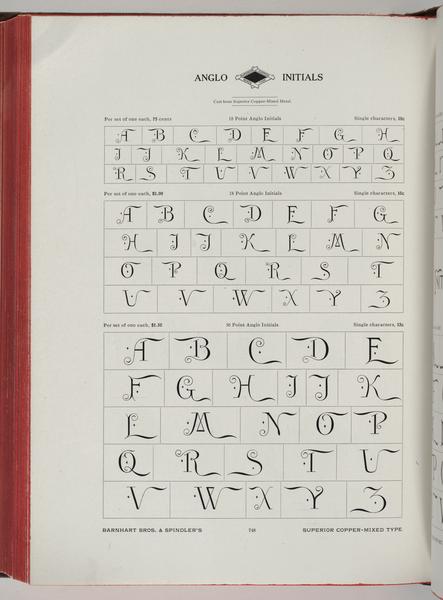 ANGLO INITIALS
Cast from Superior Copper-Mixed Metal
Per set of one each, 75 cents 18 Point Anglo Initials Single characters,
A B C D E F G H
I J K L M N O P Q
R S T U V W X Y Z
Per set of one each, $1.00 24 Point Anglo Initials Single characters,
A B C D E F G
H I J K L M N
O P Q R S T
U V W X Y Z
Per set of one each, 36 Point Anglo Initials Single characters,
A B C D E
F G H I J K
L M N O P
Q R S T U
V W X Y Z
BARNHART BROS. & SPINDLER'S 748 SUPERIOR COPPER-MIXED TYPE